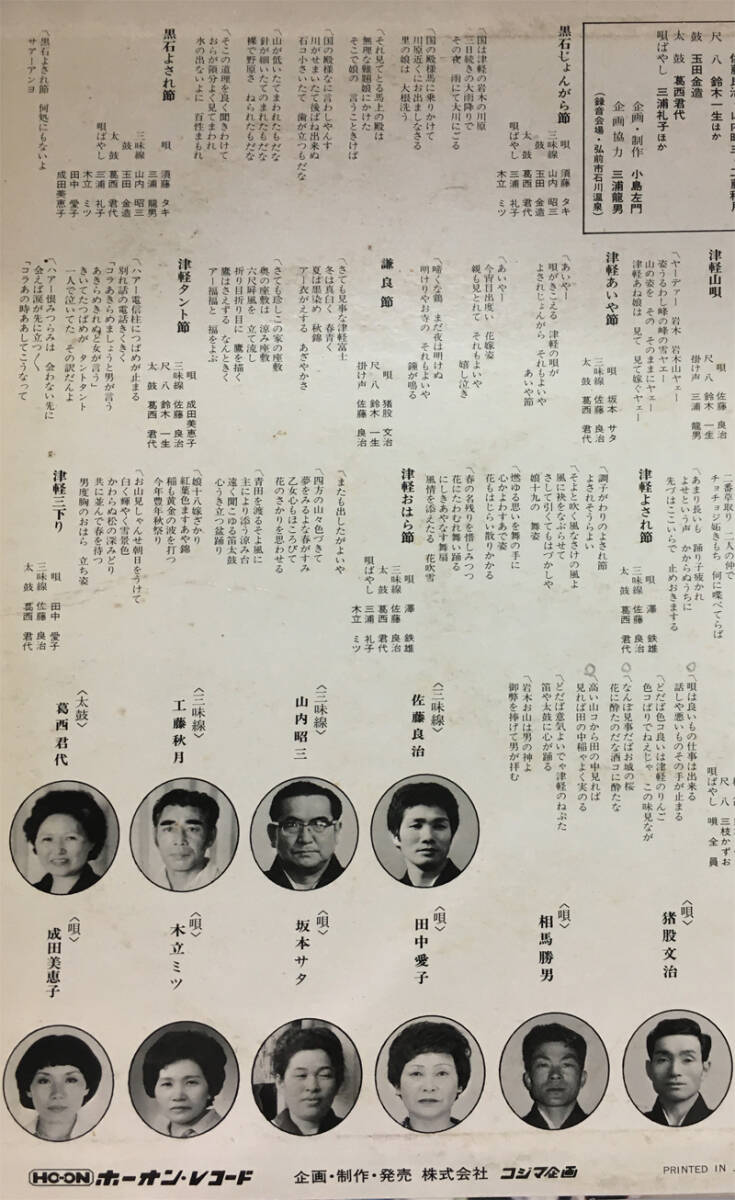 佐藤良治 山内昭三 工藤秋月
尺八 鈴木一生ほか
鼓 玉田金造
太鼓 葛西君代
唄ばやし 三浦礼子ほか
企画・制作 小島左門
企画協力 三浦龍男
(録音会場・弘前市石川温泉)
黒石じょんがら節
唄 須藤タキ
三味線 山内昭三
鼓 玉田金造
太鼓 葛西君代
唄ばやし 三浦礼子
木立ミツ
国は津軽の岩木の川原
三日続きの大雨降りで
その夜 雨にて大川にごる
国の殿様馬に乗りかけて
川原近くにお出ましなさる
里の娘は 大根洗う
それ見てとる馬上の殿は
無理な難題娘にかけた
そこで娘の 言うこときけば
国の殿様なに言わしやんす
川がせまいたて後ばね出来ぬ
石コ小さいたて 歯が立つもだな
山が低いたてまわれたもだな
針が細いたてのまれたもだな
裸で野原さ ねられたもだな
そこの道理を良く聞きわけて
おらが領分よく見てまわれ
水の出ないよに 百性まもれ
黒石よされ節
唄 須藤タキ
三浦龍男
三味線 山内昭三
鼓 玉田金造
太鼓 葛西君代
唄ばやし 三浦礼子
木立ミツ
田中愛子
成田美恵子
黒石よされ節 何処にもないよ
サアーアンヨ
津軽山唄
唄 佐藤良治
尺八 鈴木一生
掛け声 三浦龍男
ヤーデァー 岩木 岩木山ヤェー
姿うるわし峰の峰の雪ヤエー
山の姿を その そのままにヤェー
津軽あね娘は 見て 見て嫁ぐヤェー
津軽あいや節
唄 坂本サタ
三味線 佐藤良治
太鼓 葛西君代
あいやー
唄がきこえる 津軽の唄が
よされじょんがら それもよいや
あいや節
あいやー
今宵目出度い 花嫁姿
親も見とれて それもよいや
嬉し泣き
啼くな鶏 まだ夜は明けぬ
明けりやお寺の それもよいや
鐘が鳴る
謙良節
唄 猪股文治
尺八 鈴木一生
掛け声 佐藤良治
さても見事な津軽富士
冬は真白く 春青く
夏は墨染め 秋錦
アー衣がえする あざやかさ
さても珍しこの家の座敷
奥の座敷は 涼み座敷
六尺屏風を 立て流し
折り目折り目に 鷹を描く
鷹はさえずる なんときく
アー福福と 福をよぶ
津軽タント節
唄 成田美恵子
三味線 佐藤良治
尺八 鈴木一生
太鼓 葛西君代
ハアー電信柱につばめが止まる
別れ話の電話きくきく
「コラあきらめましょうと男が言う
あきらめきれぬと女が言う」
きいてたつばめが タントタント
一人で泣いてた その訳だんよ
ハアー恨みつらみは 会わない先に
会えば涙が先に立つ
「コラあの時ああしてこうなって
二番草取り 二人の仲で
チョチョジ妬きもち 何に喋べてらば
あまり長いも 踊り子疲かれ
よせという声 かからぬうちに
先づはここいらで 止めおきまする
津軽よされ節
唄 澤鉄雄
三味線 佐藤良治
太鼓 葛西君代
調子がわりのよされ節
よされそうらよい
そよと吹く風なさけの風よ
風に袂をなぶらせて
さして引くてもはづかしや
娘十九の 舞姿
燃ゆる思いを舞の手に
心かよわすあで姿
花もはじらい散りかかる
春の名残りを惜しみつつ
花にたわむれ舞い踊る
にしきあやなす舞扇
風情を添えたる 花吹雪
津軽おはら節
唄 澤鉄雄
三味線 佐藤良治
太鼓 葛西君代
唄ばやし 三浦礼子
木立ミツ
またも出したがよいや
四方の山々色づきて
夢をみるよな春がすみ
乙女心もほころびて
花のさかりを思わせる
青田を渡るそよ風に
主により添う涼み台
遠く聞こゆる笛太鼓
心うき立つ盆踊り
娘十八嫁ざかり
紅葉色ますあや錦
稲も黄金の波を打つ
今年豊年秋祭り
お山見しゃんせ朝日をうけて
白く輝やく雪景色
かわらぬ松の深みどり
共に並んで春を待つ
男度胸のおはら 立ち姿
津軽三下り
唄 田中愛子
三味線 佐藤良治
太鼓 葛西君代
尺八 三枝かずお
唄ばやし 唄全員
唄は良いもの仕事は出来る
話しや悪いものその手が止まる
どだば色コ良いは津軽のりんご
色コばりでねえじゃ この味見なが
なんぼ見事だばお城の桜
花に酔たのだな酒コに酔たな
高い山コから田の中見れば
見れば田の中稲ゃよく実のる
どだば意気よいでゃ津軽のねぷた
笛や太鼓に心が踊る
岩木お山は男の神よ
御幣を捧げて男が拝む
〈三味線〉
佐藤良治
〈三味線〉
山内昭三
〈三味線〉
工藤秋月
〈太鼓〉
葛西君代
〈唄〉
猪股文治
〈唄〉
相馬勝男
〈唄〉
田中愛子
〈唄〉
坂本サタ
〈唄〉
木立ミツ
〈唄〉
成田美恵子
HO-ON ホーオン・レコード 企画・制作・発売 株式会社 コジマ企画
PRINTED IN